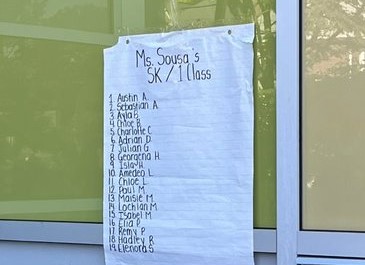 Ms. Sousa's
SK / 1 Class
1. Austin A.
2. Sebastian A.
3. Ayla B.
4. Chloe B.
5. Charlotte C.
6. Adrian D.
7. Julian G.
8. Georgena H.
9. Isla H.
10. Amedeo L.
11. Chloe L.
12. Paul M.
13. Maisie M.
14. Lochlan M.
15. Isabel M.
16. Elia P.
17. Remy P.
18. Hadley R.
19. Elenora S.